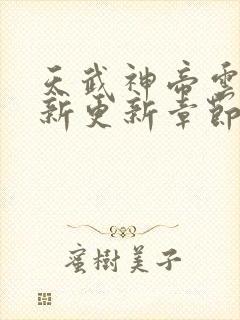 天武神帝雲
新更新章節
蜜樹美子